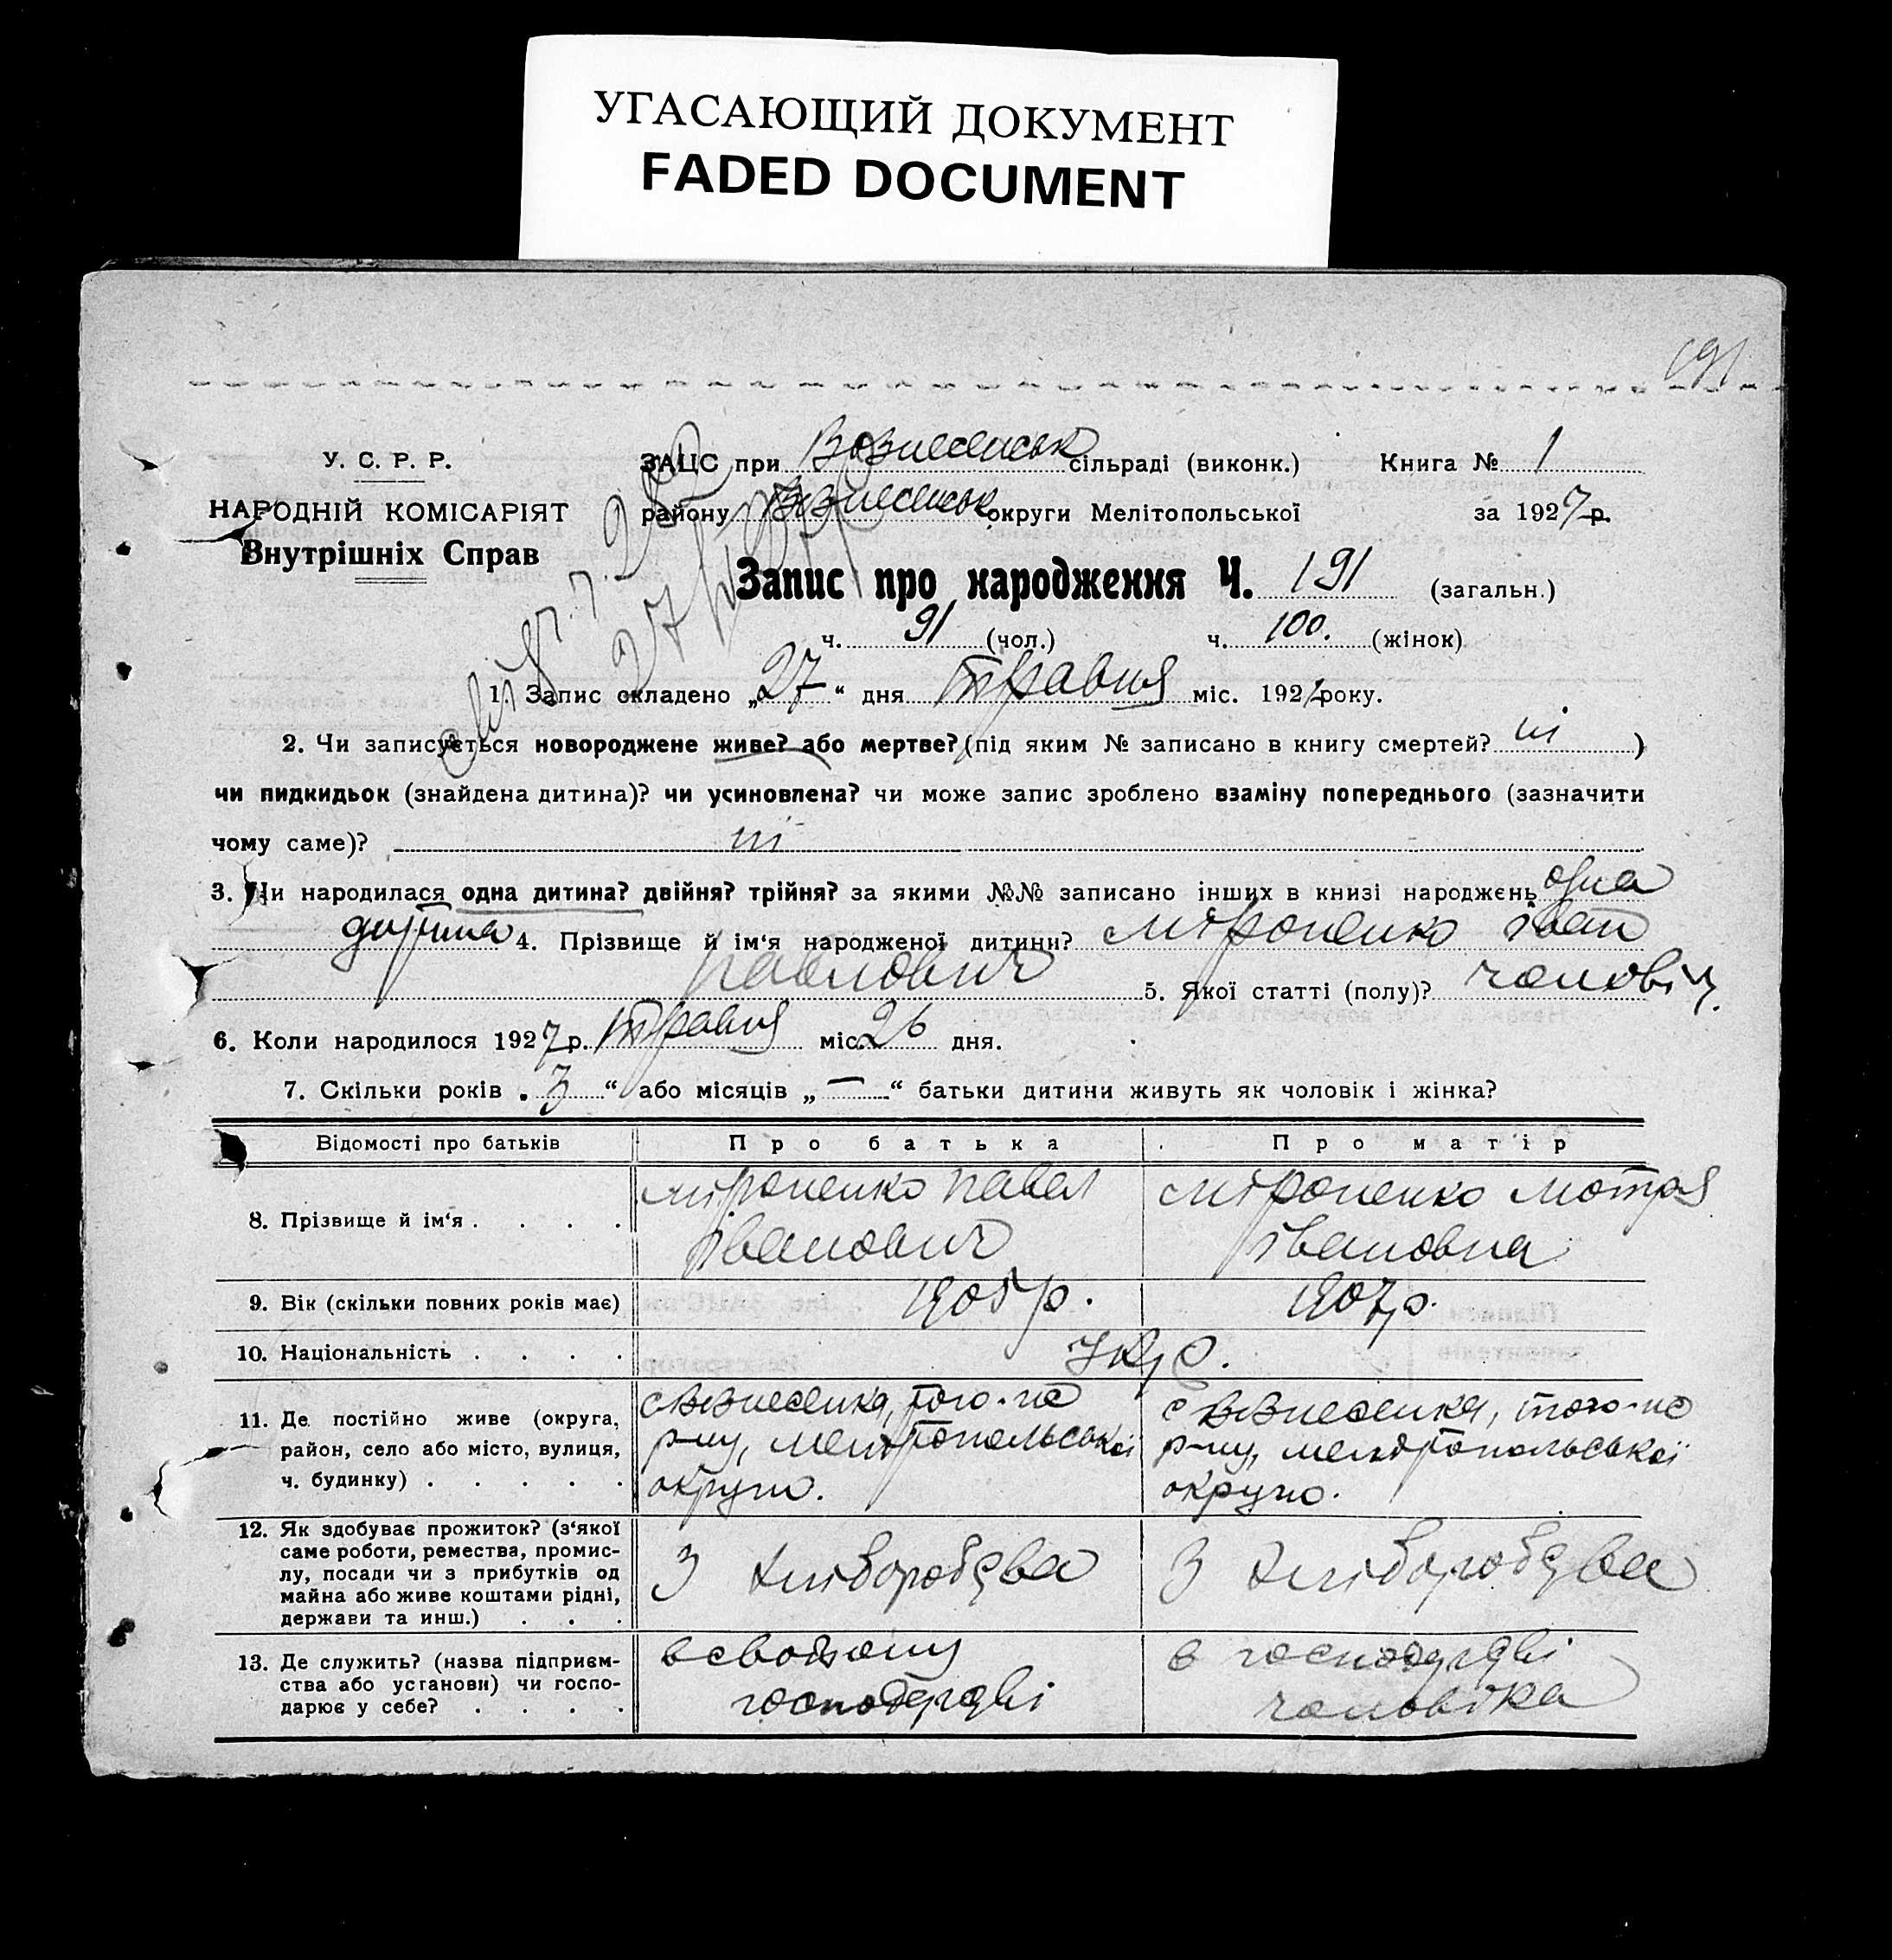 УГАСАЮЩИЙ ДОКУМЕНТ
FADED DOCUMENT
191
У. С. Р. Р.
НАРОДНІЙ КОМІСАРІЯТ
Внутрішніх Справ
ЗАЦС при Вознесенськ сільраді (виконк.) Книга № 1
району Вознесенськ округи Мелітопольської за 1927 р.
Запис про народження Ч. 191 (загальн.)
ч. 91 (чол.) ч. 100. (жінок)
1. Запис складено „27“ дня травня міс. 1927 року.
2. Чи записується новороджене живе? або мертве? (під яким № записано в книгу смертей? ні )
чи пидкидьок (знайдена дитина)? чи усиновлена? чи може запис зроблено взаміну попереднього (зазначити
чому саме)? ні
3. Чи народилася одна дитина? двійня? трійня? за якими №№ записано інших в книзі народжень одна
дитина 4. Прізвище й ім‘я народженої дитини? Міроненко Іван
Павлович 5. Якої статті (полу)? чоловіч.
6. Коли народилося 1927 р. травня міс. 26 дня.
7. Скільки років „3“ або місяців „—“ батьки дитини живуть як чоловік і жінка?
Відомості про батьків Про батька Про матір
8. Прізвище й ім‘я . . . . Міроненко Павел Іванович Міроненко Мотря Івановна
9. Вік (скільки повних років має) 1905 р. 1907 р.
10. Національність . . . . Укр.
11. Де постійно живе (округа,
район, село або місто, вулиця,
ч. будинку) . . . . .
с Вознесенка, того-же
р-ну, Мелітопольської
округи.
с Вознесенка, того-же
р-ну, Мелітопольської
округи.
12. Як здобуває прожиток? (з‘якої
саме роботи, ремества, промис-
лу, посади чи з прибутків од
майна або живе коштами рідні,
держави та инш.) . . .
З хліборобства
З хліборобства
13. Де служить? (назва підприєм-
ства або установи) чи госпо-
дарює у себе? . . . .
в свойому
господарстві
в господарстві
чоловіка